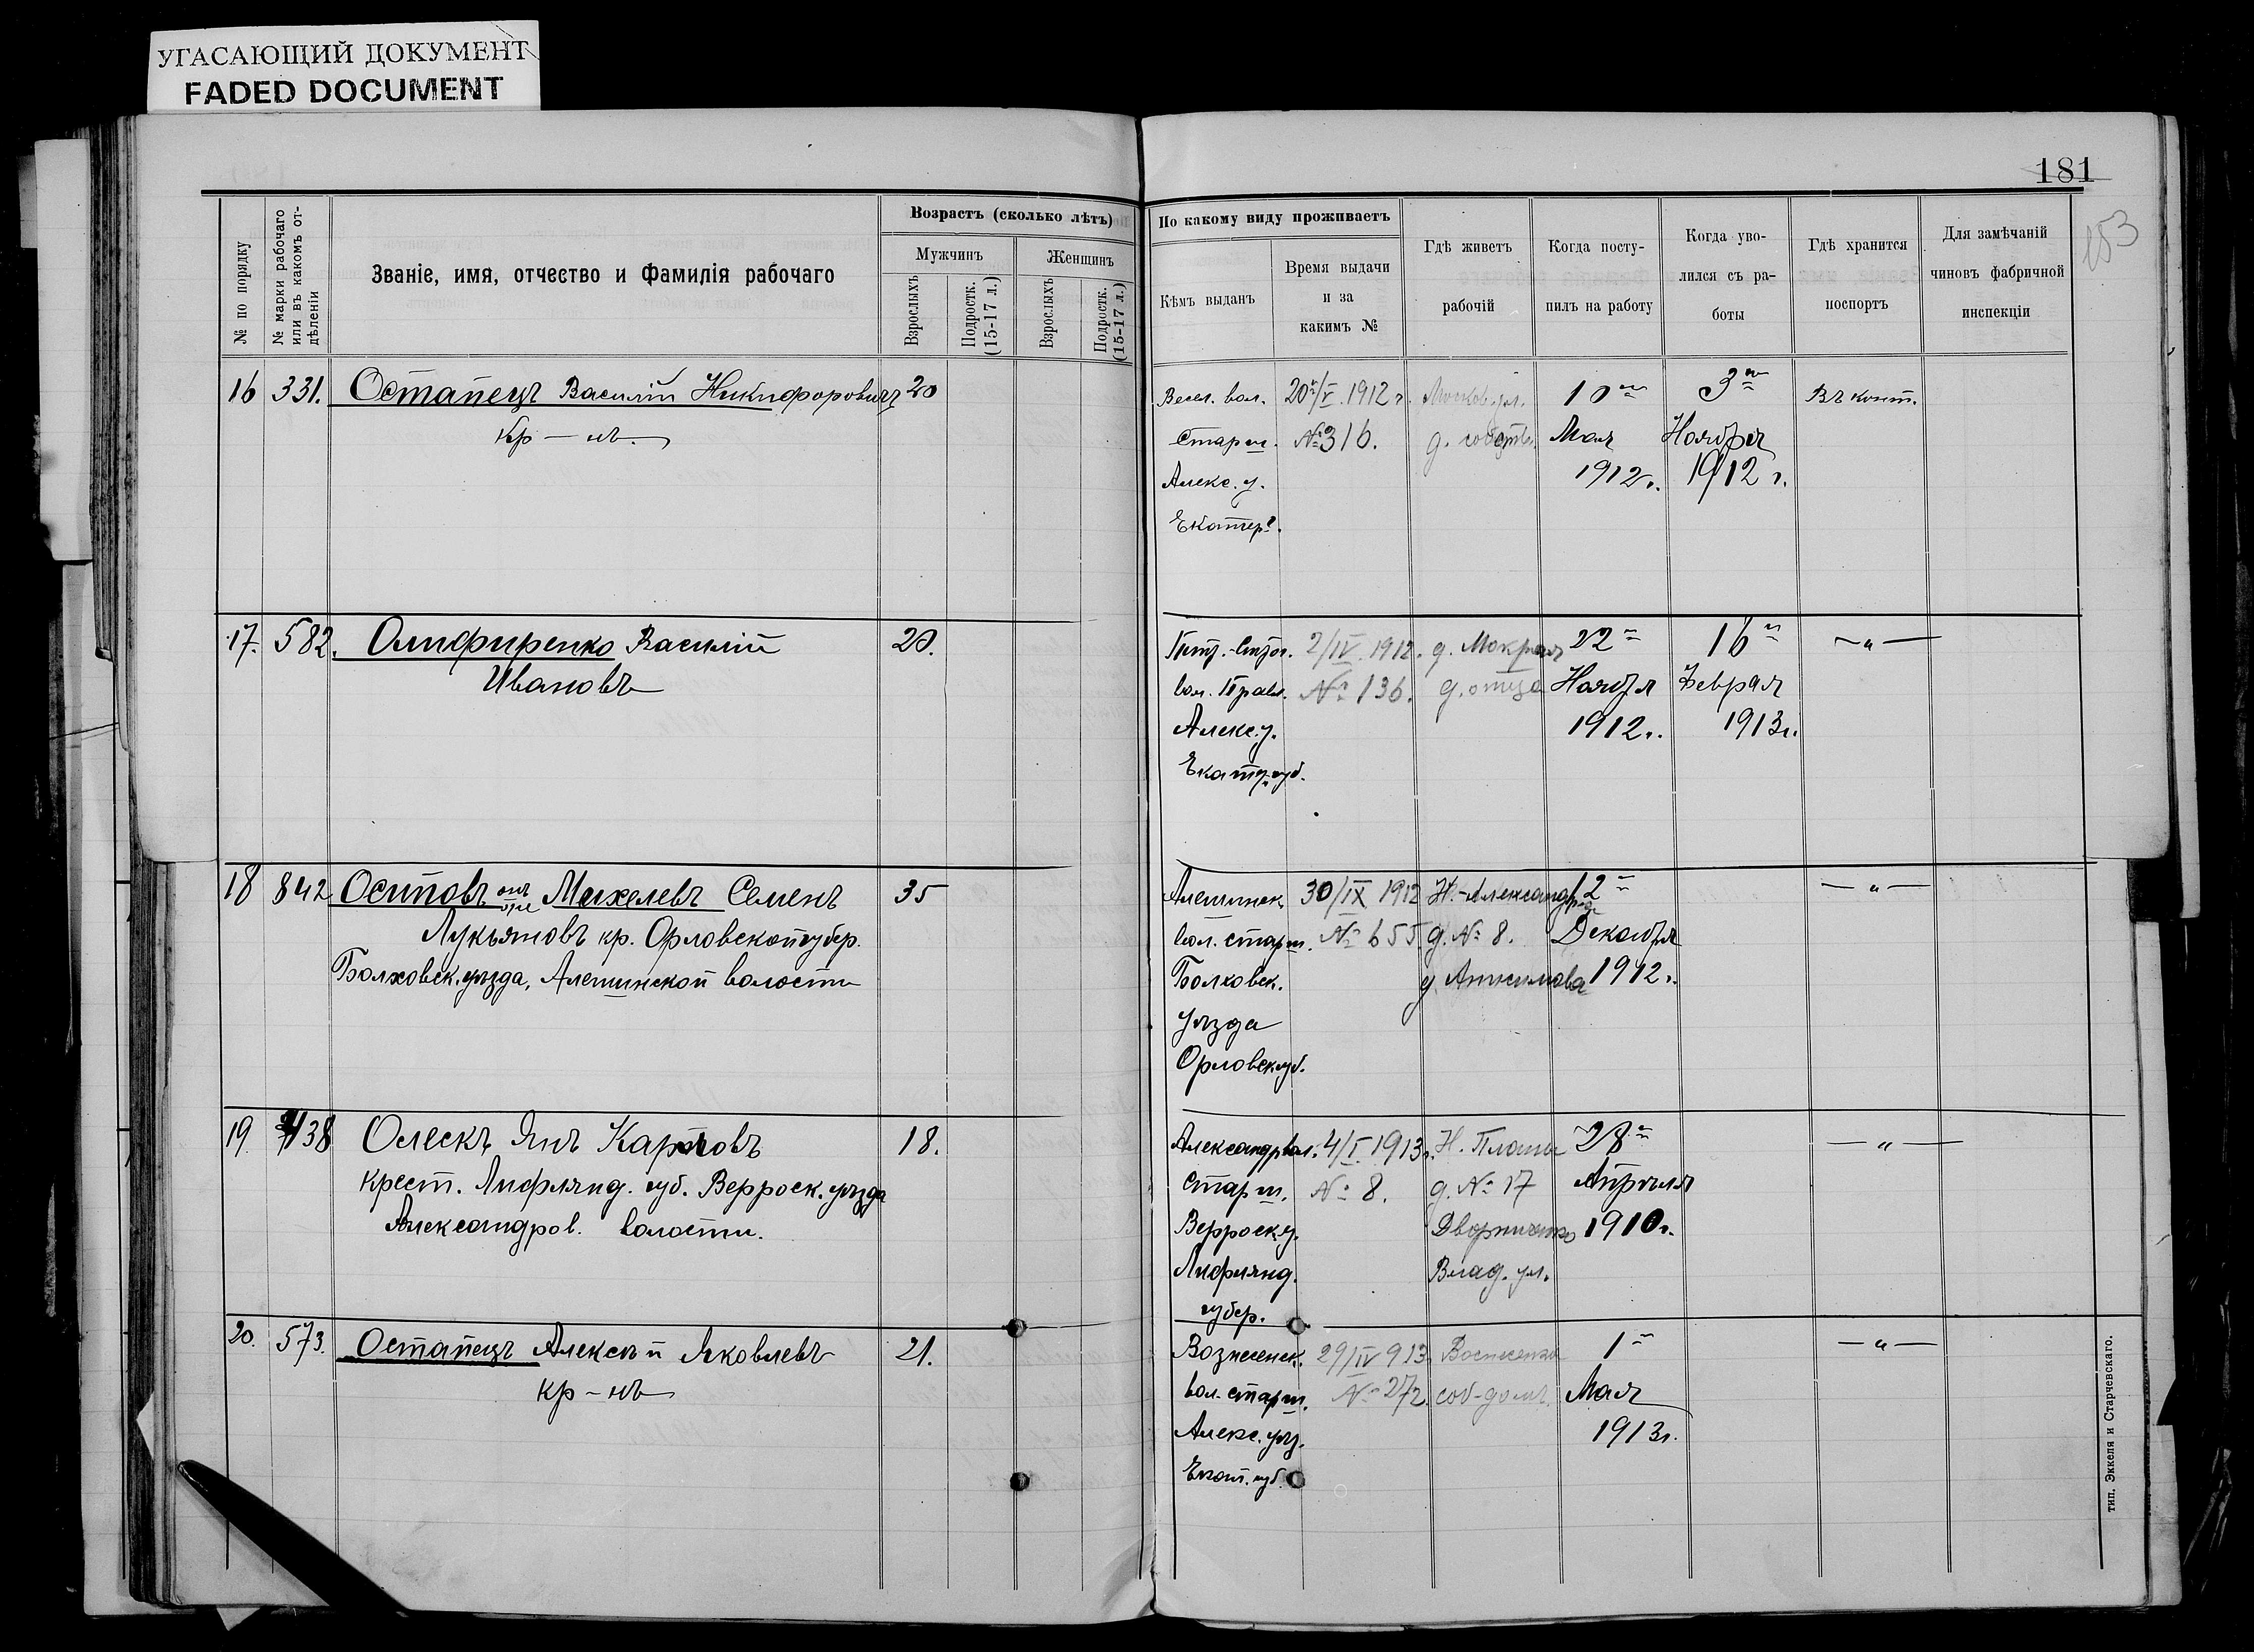 УГАСАЮЩИЙ ДОКУМЕНТ
FADED DOCUMENT
181
153
№ по порядку
№ марки рабочаго
или въ какомъ от-
дѣленіи
Званіе, имя, отчество и фамилія рабочаго
Возрастъ (сколько лѣтъ)
Мужчинъ
Женщинъ
Взрослыхъ
Подростк.
(15-17 л.)
Взрослыхъ
Подростк.
(15-17 л.)
По какому виду проживаетъ
Кѣмъ выданъ
Время выдачи
и за
какимъ №
Гдѣ живетъ
рабочій
Когда посту-
пилъ на работу
Когда уво-
лился съ ра-
боты
Гдѣ хранится
поспортъ
Для замѣчаній
чиновъ фабричной
инспекціи
16 331. Остапецъ Василій Никифоровичъ 20
кр-нъ.
Весел. вол.
Старш.
Алекс. у.
Екатер.
20/V 1912 г.
№ 316.
Москов. ул.
д. собств.
10
Мая
1912 г.
3
Ноября
1912 г.
Въ конт.
17. 582. Олифиренко Василій 20.
Ивановъ
вол. Прав.
Алекс. у.
Екат. губ.
2/IV. 1912.
№ 136.
д. Мокрая
д. отца
22
Ноября
1912 г.
16
Февраля
1913 г.
— " —
18 842 Осиповъ онъ же Михелевъ Семенъ 35
Лукьяновъ кр. Орловской губер.
Болховск. уѣзда, Алешинской волости
Алешинск.
вол. старш.
Болховск.
уѣзда
Орловск. губ.
30/IX 1912
№ 655
Н.-Александр.
д. № 8.
д. Анисимова
12
Декабря
1912 г.
— " —
19 438 Олескъ Янъ Карповъ 18.
крест. Лифлянд. губ. Верроск. уѣзда
Александров. волости.
Александр. вол.
Старш.
Верроск. у.
Лифлянд.
губер.
4/I 1913 г.
№ 8.
Н. Планы
д. № 17
Дворниченко
Влад. ул.
28
Апрѣля
1910 г.
— " —
20. 573. Остапецъ Алексѣй Яковлевъ 21.
кр-нъ
Вознесенск.
вол. старш.
Алекс. уѣз.
Екат. губ.
29/IV 913
№ 272
Вознесенка
соб. домъ.
1
Мая
1913 г.
— " —
тип. Эккеля и Старчевскаго.